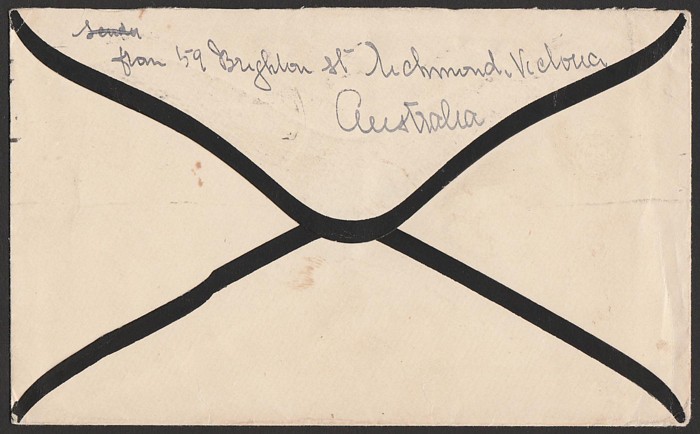 Sender
from 59 Brighton St Richmond, Victoria
Australia